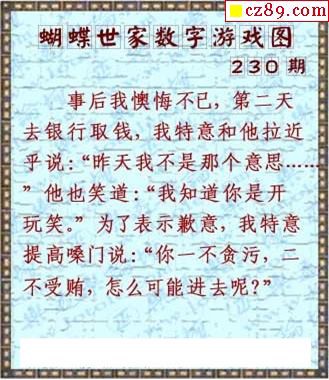 cz89.com
蝴蝶世家数字游戏图
230 期
事后我懊悔不已，第二天
去银行取钱，我特意和他拉近
乎说：“昨天我不是那个意思……
”他也笑道：“我知道你是开
玩笑。”为了表示歉意，我特意
提高嗓门说：“你一不贪污，二
不受贿，怎么可能进去呢？”